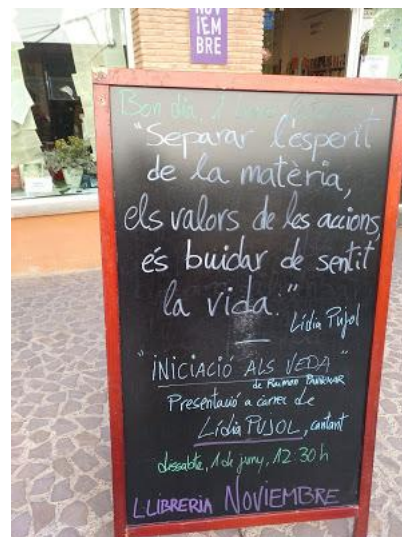 NOV
IEM
BRE
Bon dia, i
"Separar l'esperit
de la matèria,
els valors de les accions,
és buidar de sentit
la vida."
Lídia Pujol
"INICIACIÓ ALS VEDA"
de Raimon PANIKKAR
Presentació a càrrec de
Lídia PUJOL, cantant
dissabte, 1 de juny, 12:30 h
LLIBRERIA NOVIEMBRE